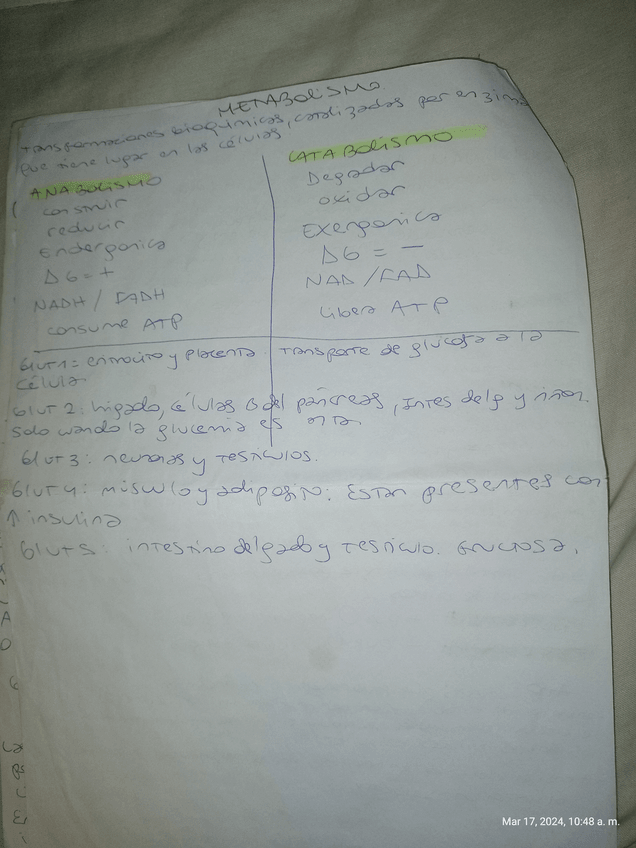 METABOLISMO
Transformaciones bioquímicas, catalizadas por enzima
que tiene lugar en las células.
ANABOLISMO
construir
reducir
Endergonica
ΔG = +
NADH / FADH
consume ATP
CATABOLISMO
Degradar
oxidar
Exergonica
ΔG = −
NAD / FAD
Libera ATP
Glut 1 = eritrocito y placenta. Transporte de glucosa a la
célula.
Glut 2: hígado, células B del páncreas, Intes delg y riñon.
Solo cuando la glucemia es alta.
Glut 3: neuronas y Testiculos.
Glut 4: músculo y adiposito. Estan presentes con
↑ insulina
Glut 5: intestino delgado y Testiculo. Fructosa.
Mar 17, 2024, 10:48 a. m.